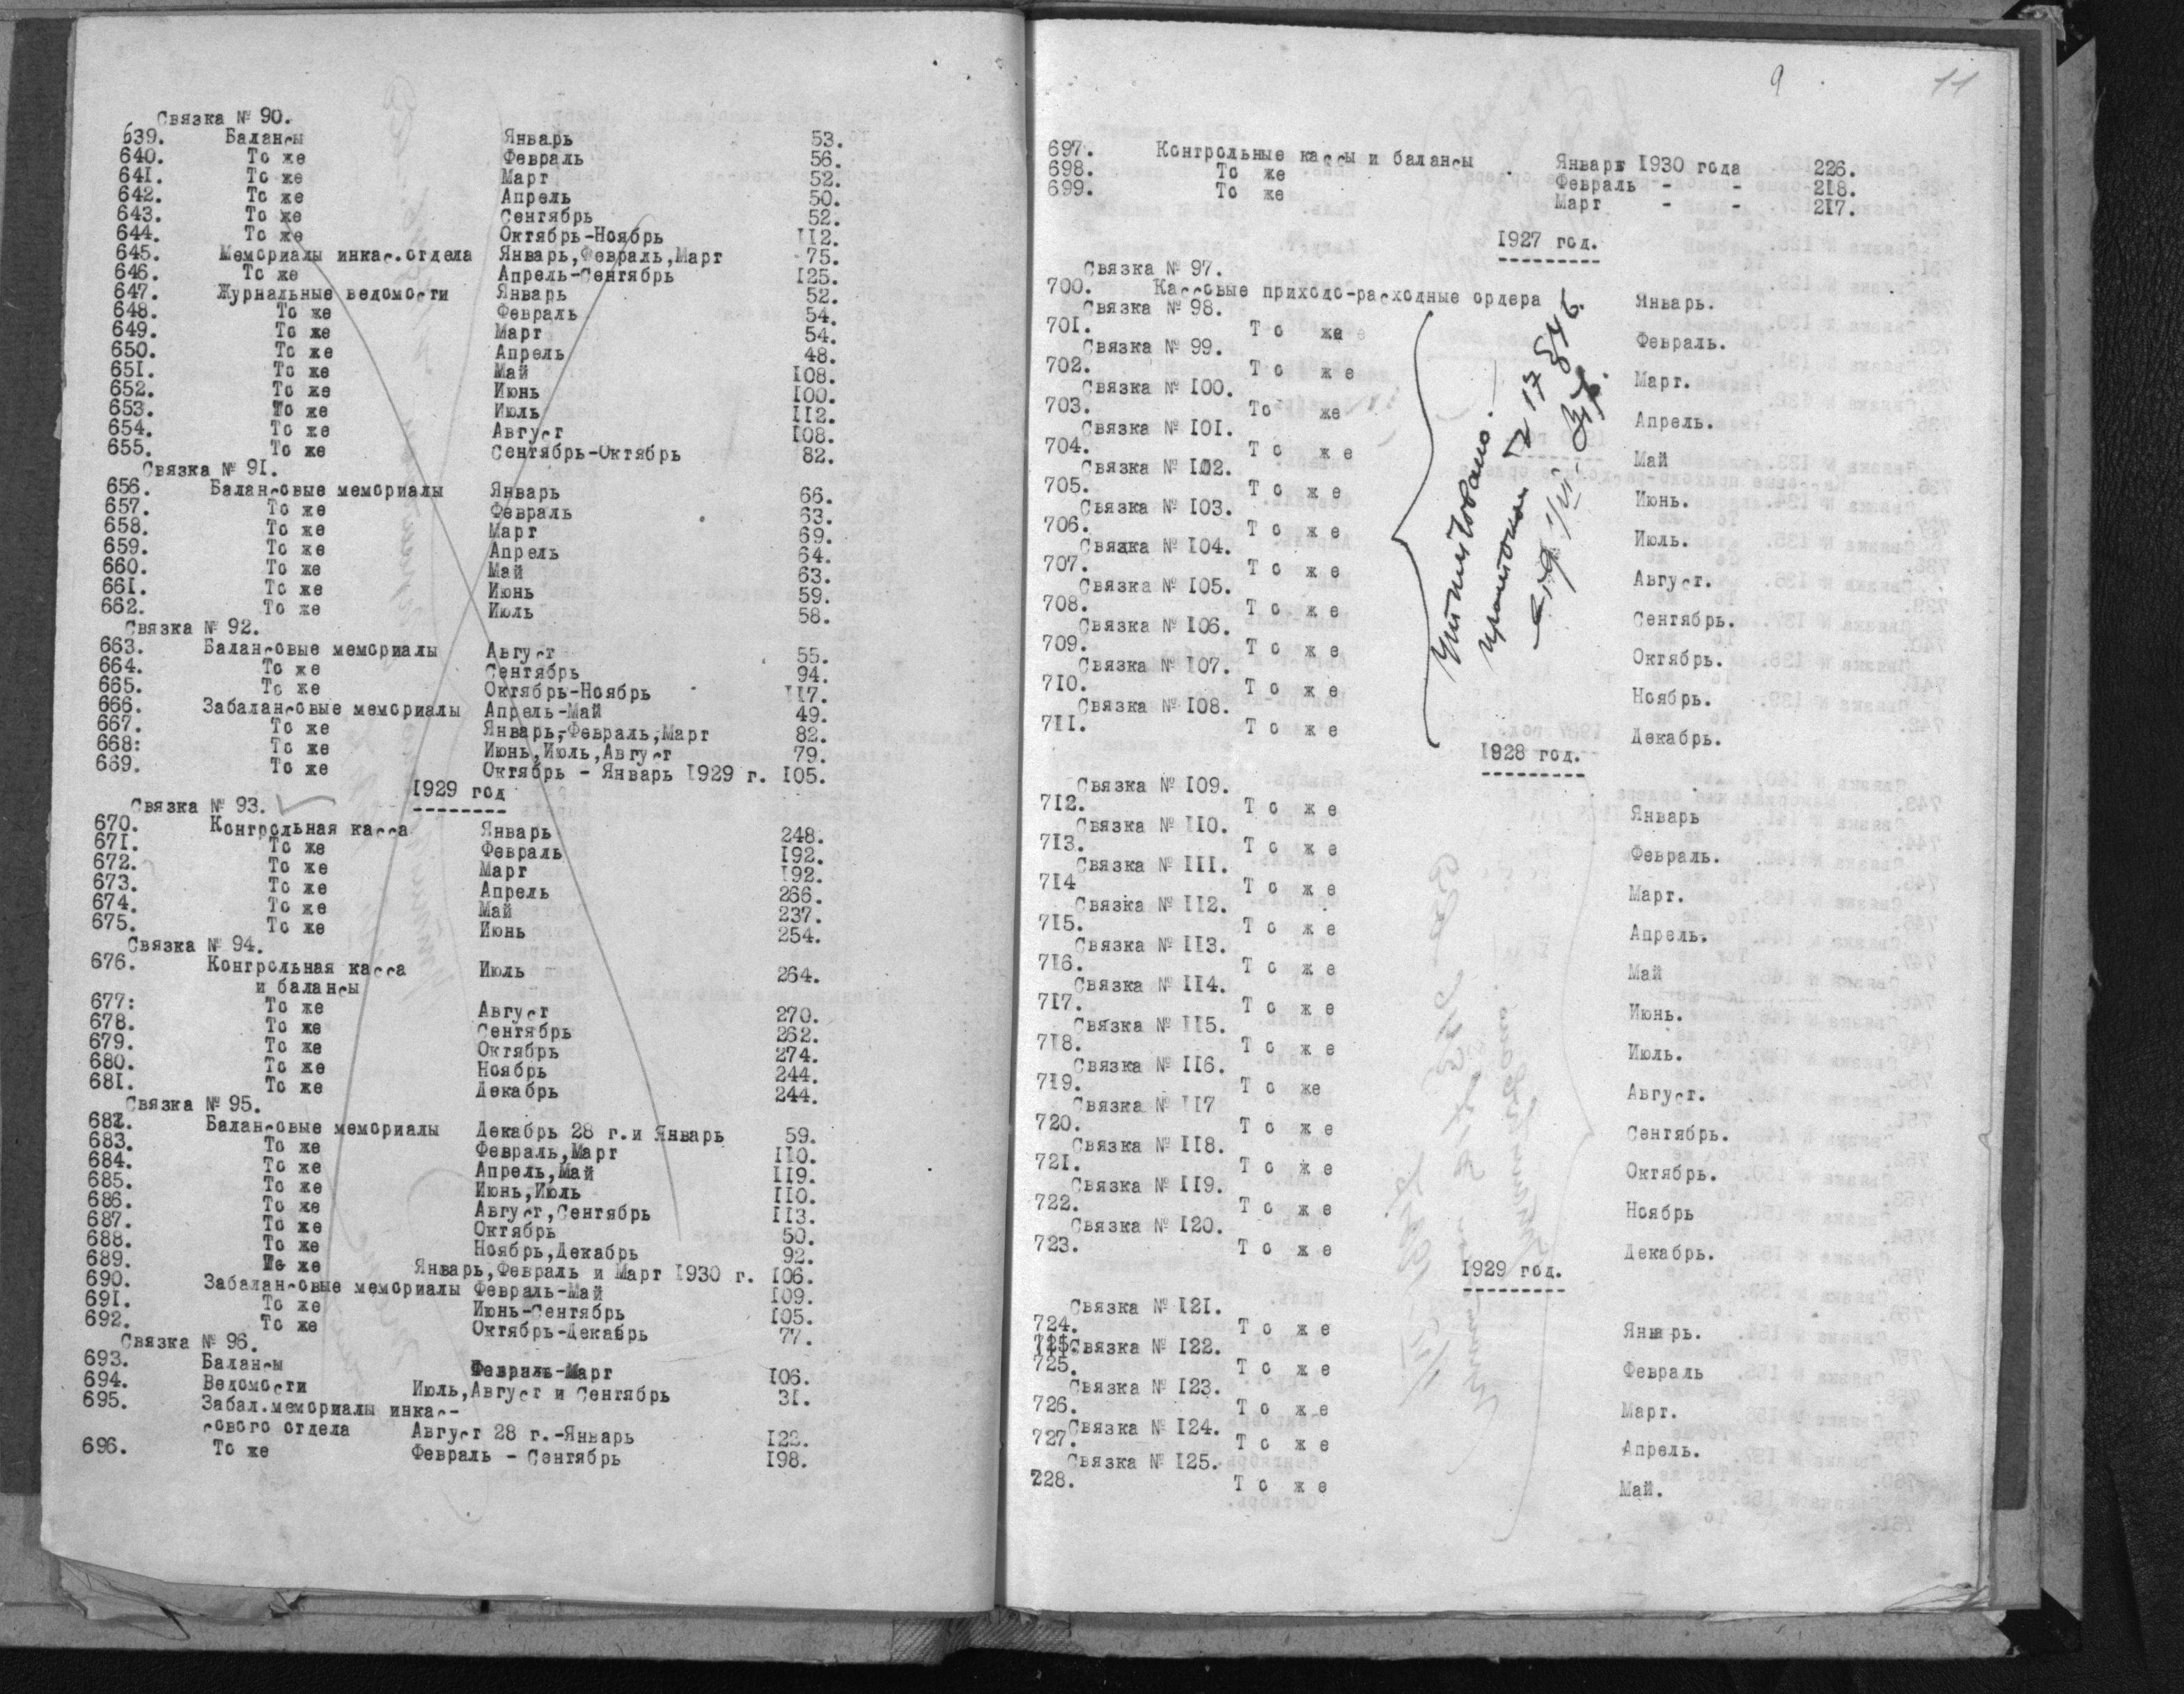 Связка № 90.
639. Балансы Январь 53.
640. То же Февраль 56.
641. То же Март 52.
642. То же Апрель 50.
643. То же Сентябрь 52.
644. То же Октябрь-Ноябрь 112.
645. Мемориалы инкас.отдела Январь,Февраль,Март 75.
646. То же Апрель-Сентябрь 125.
647. Журнальные ведомости Январь 52.
648. То же Февраль 54.
649. То же Март 54.
650. То же Апрель 48.
651. То же Май 108.
652. То же Июнь 100.
653. То же Июль 112.
654. То же Август 108.
655. То же Сентябрь-Октябрь 82.
Связка № 91.
656. Балансовые мемориалы Январь 66.
657. То же Февраль 63.
658. То же Март 69.
659. То же Апрель 64.
660. То же Май 63.
661. То же Июнь 59.
662. То же Июль 58.
Связка № 92.
663. Балансовые мемориалы Август 55.
664. То же Сентябрь 94.
665. То же Октябрь-Ноябрь 117.
666. Забалансовые мемориалы Апрель-Май 49.
667. То же Январь,-Февраль,Март 82.
668: То же Июнь,Июль,Август 79.
669. То же Октябрь - Январь 1929 г. 105.
1929 год
Связка № 93.
670. Контрольная касса Январь 248.
671. То же Февраль 192.
672. То же Март 192.
673. То же Апрель 266.
674. То же Май 237.
675. То же Июнь 254.
Связка № 94.
676. Контрольная касса Июль 264.
и балансы
677: То же Август 270.
678. То же Сентябрь 262.
679. То же Октябрь 274.
680. То же Ноябрь 244.
681. То же Декабрь 244.
Связка № 95.
682. Балансовые мемориалы Декабрь 28 г.и Январь 59.
683. То же Февраль,Март 110.
684. То же Апрель,Май 119.
685. То же Июнь,Июль 110.
686. То же Август,Сентябрь 113.
687. То же Октябрь 50.
688. То же Ноябрь,Декабрь 92.
689. То же Январь,Февраль и Март 1930 г. 106.
690. Забалансовые мемориалы Февраль-Май 109.
691. То же Июнь-Сентябрь 105.
692. То же Октябрь-Декабрь 77.
Связка № 96.
693. Балансы Февраль-Март 106.
694. Ведомости Июль,Август и Сентябрь 31.
695. Забал.мемориалы инкас-
сового отдела Август 28 г.-Январь 122.
696. То же Февраль - Сентябрь 198.
9 11
697. Контрольные кассы и балансы Январь 1930 года 226.
698. То же Февраль - - 218.
699. То же Март - - 217.
1927 год.
Связка № 97.
700. Кассовые приходо-расходные ордера Январь.
Связка № 98.
701. То же Февраль.
Связка № 99.
702. То же Март.
Связка № 100.
703. То же Апрель.
Связка № 101.
704. То же Май
Связка № 102.
705. То же Июнь.
Связка № 103.
706. То же Июль.
Связка № 104.
707. То же Август.
Связка № 105.
708. То же Сентябрь.
Связка № 106.
709. То же Октябрь.
Связка № 107.
710. То же Ноябрь.
Связка № 108.
711. То же Декабрь.
1928 год.
Связка № 109.
712. То же Январь
Связка № 110.
713. То же Февраль.
Связка № 111.
714 То же Март.
Связка № 112.
715. То же Апрель.
Связка № 113.
716. То же Май
Связка № 114.
717. То же Июнь.
Связка № 115.
718. То же Июль.
Связка № 116.
719. То же Август.
Связка № 117
720. То же Сентябрь.
Связка № 118.
721. То же Октябрь.
Связка № 119.
722. То же Ноябрь
Связка № 120.
723. То же Декабрь.
1929 год.
Связка № 121.
724. То же Январь.
Связка № 122.
725. То же Февраль
Связка № 123.
726. То же Март.
Связка № 124.
727. То же Апрель.
Связка № 125.
728. То же Май.